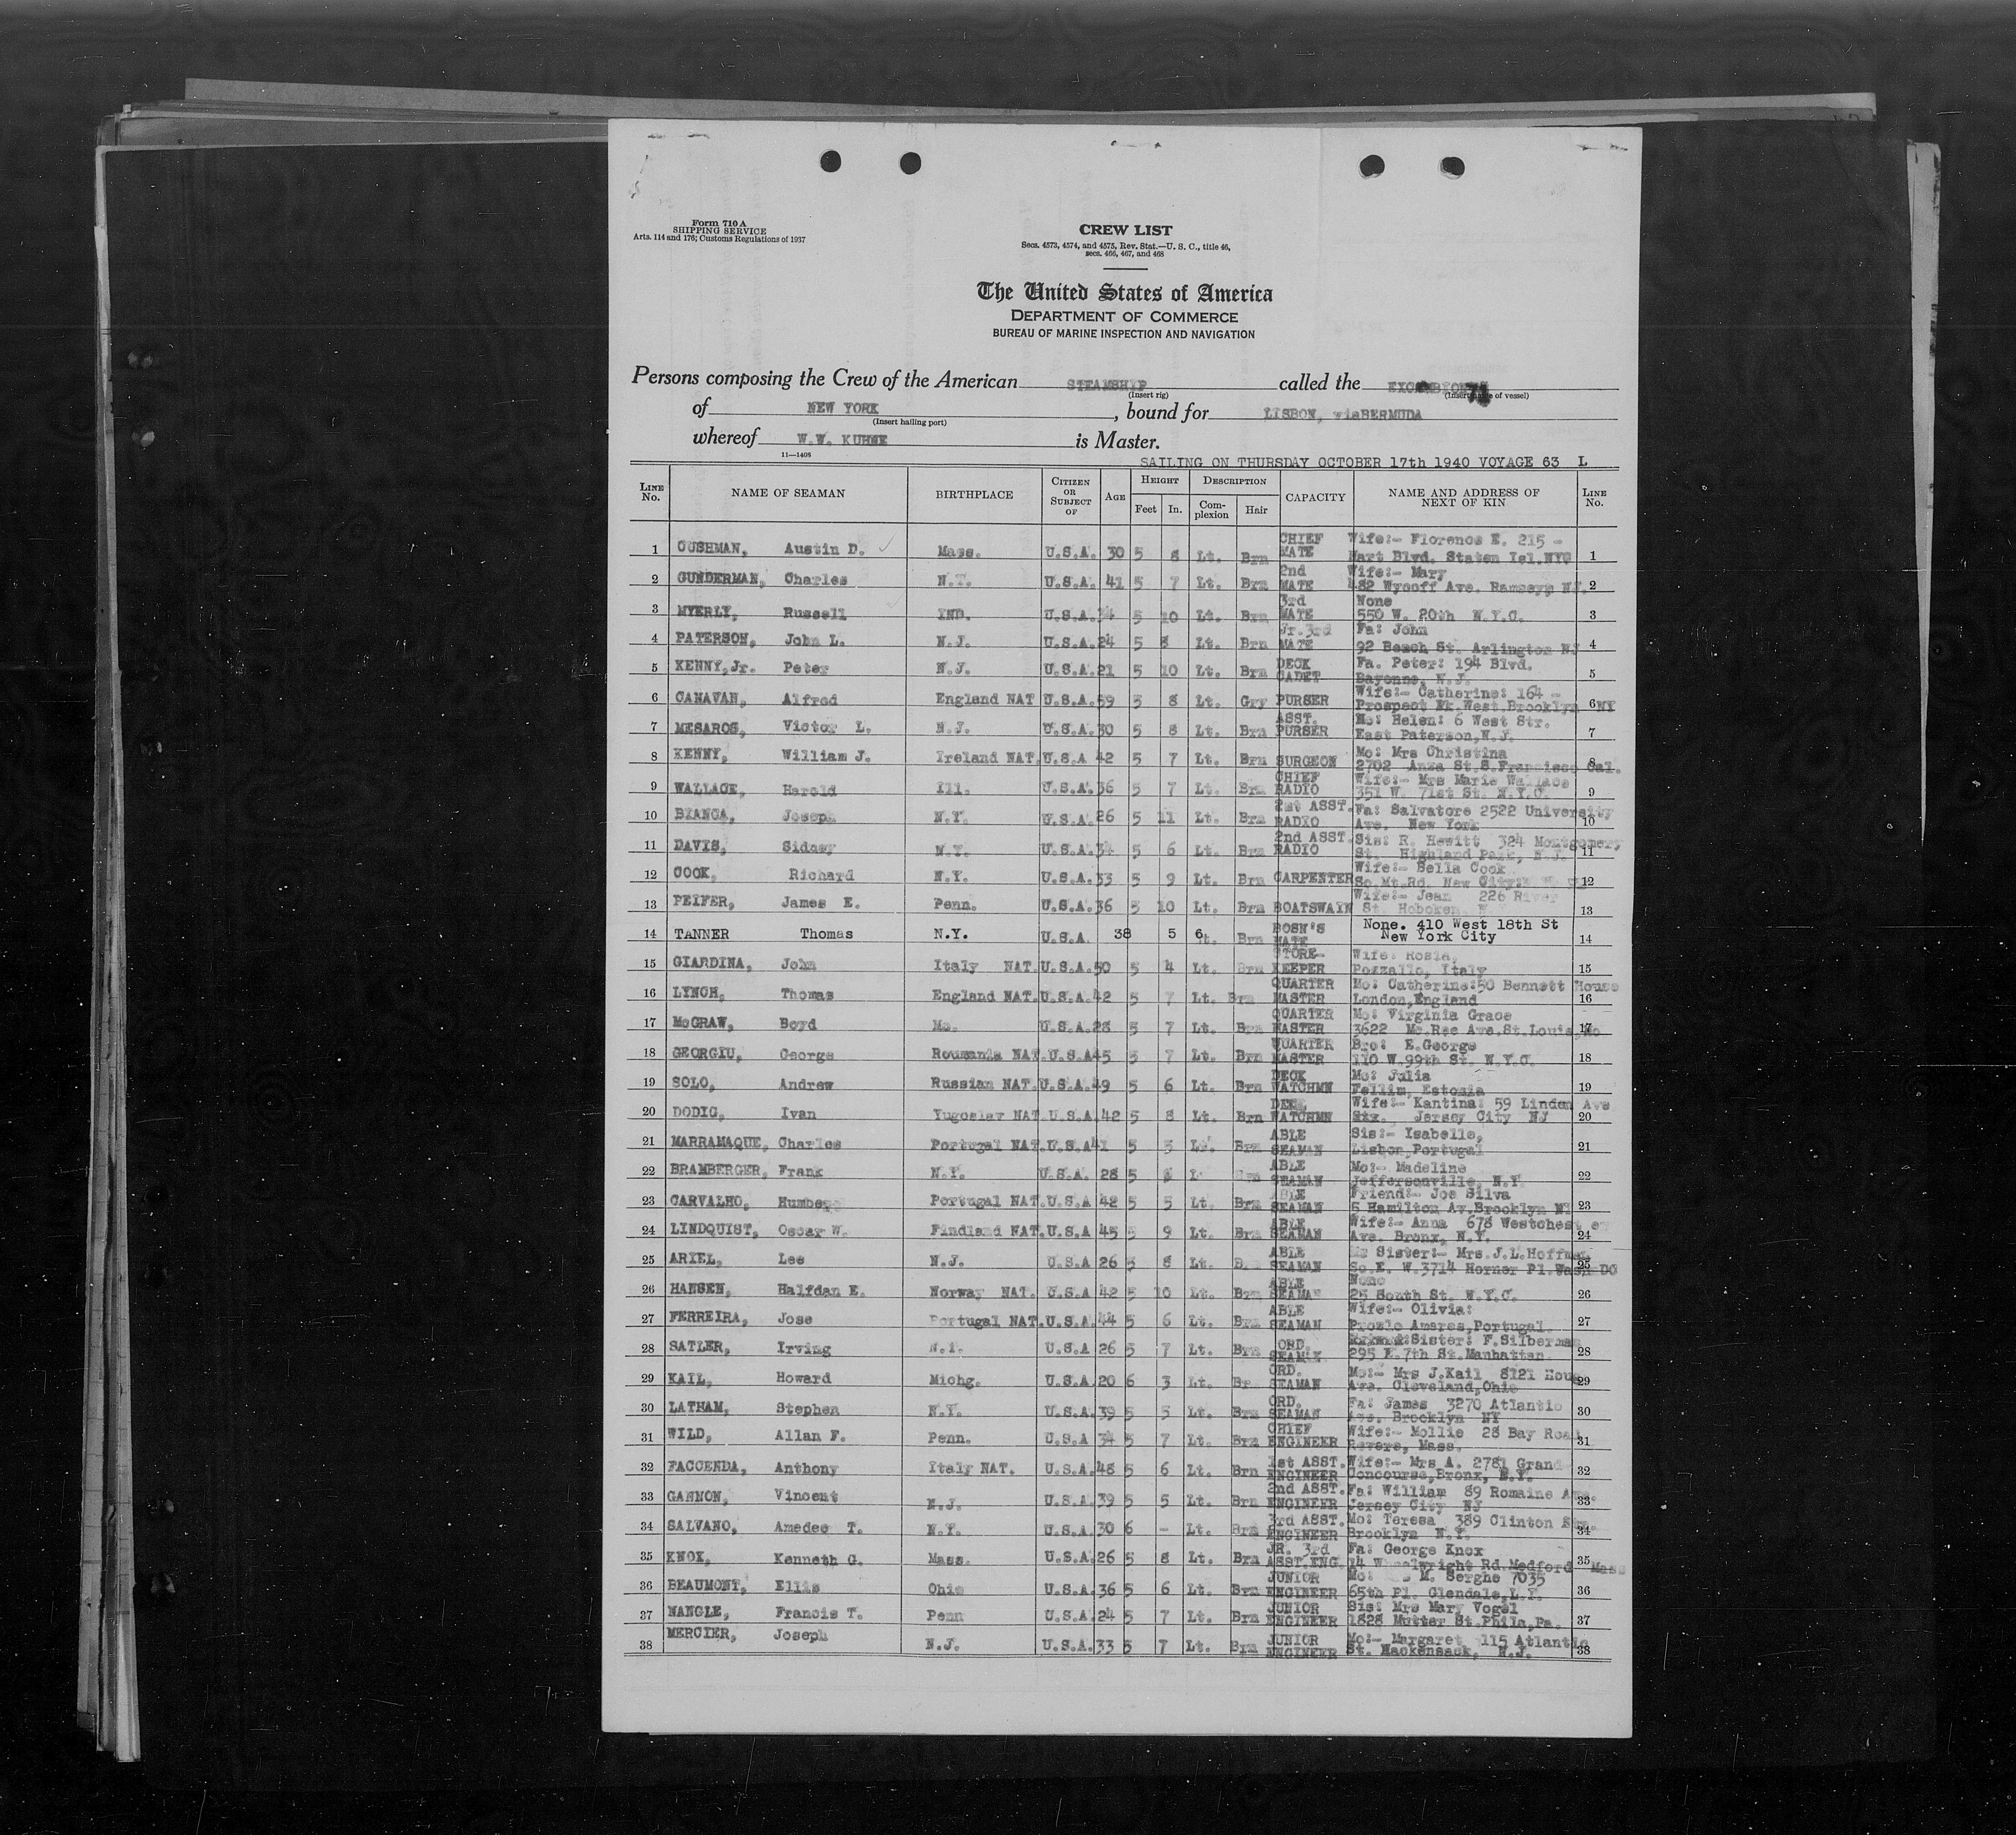 Form 710 A
SHIPPING SERVICE
Arts. 114 and 176; Customs Regulations of 1937
CREW LIST
Secs. 4573, 4574, and 4575, Rev. Stat.—U. S. C., title 46,
secs. 466, 467, and 468
The United States of America
DEPARTMENT OF COMMERCE
BUREAU OF MARINE INSPECTION AND NAVIGATION
Persons composing the Crew of the American STEAMSHIP called the
(Insert rig) (Insert name of vessel)
of NEW YORK, bound for LISBON, viaBERMUDA
(Insert hailing port)
whereof W.W. KUHNE is Master.
11—1408
SAILING ON THURSDAY OCTOBER 17th 1940 VOYAGE 63 L
LINE No. NAME OF SEAMAN BIRTHPLACE CITIZEN OR SUBJECT OF AGE HEIGHT Feet In. DESCRIPTION Complexion Hair CAPACITY NAME AND ADDRESS OF NEXT OF KIN LINE No.
1 CUSHMAN, Austin D. Mass. U.S.A. 30 5 8 Lt. Brn CHIEF MATE Wife:- Florence E. 215 - Hart Blvd. Staten Isl.NYC 1
2 GUNDERMAN, Charles N.Y. U.S.A. 41 5 7 Lt. Brn 2nd MATE Wife:- Mary 482 Wycoff Ave. Ramsey, NJ. 2
3 MYERLY, Russell IND. U.S.A. 34 5 10 Lt. Brn 3rd MATE None 550 W. 20th N.Y.C. 3
4 PATERSON, John L. N.J. U.S.A. 24 5 8 Lt. Brn Jr.3rd MATE Fa: John 92 Beach St. Arlington NJ 4
5 KENNY,Jr. Peter N.J. U.S.A. 21 5 10 Lt. Brn DECK CADET Fa. Peter: 194 Blvd. Bayonne, N.J. 5
6 CANAVAN, Alfred England NAT U.S.A. 59 5 8 Lt. Gry PURSER Wife:- Catherine: 164 - Prospect Pk.West Brooklyn NY 6
7 MESAROS, Victor L. N.J. U.S.A. 30 5 8 Lt. Brn ASST. PURSER Mo: Helen: 6 West Str. East Paterson,N.J. 7
8 KENNY, William J. Ireland NAT. U.S.A 42 5 7 Lt. Brn SURGEON Mo: Mrs Christina 2702 Anza St.S.Francisco Cal. 8
9 WALLACE, Harold Ill. U.S.A. 36 5 7 Lt. Brn CHIEF RADIO Wife:- Mrs Marie Wallace 351 W. 71st St. N.Y.C. 9
10 BIANCA, Joseph N.Y. U.S.A. 26 5 11 Lt. Brn ASST. RADIO Fa: Salvatore 2522 University Ave. New York 10
11 DAVIS, Sidney N.Y. U.S.A. 34 5 6 Lt. Brn 2nd ASST. RADIO Sis: R. Hewitt 324 Montgomery St. Highland Park, N.J. 11
12 COOK, Richard N.Y. U.S.A. 33 5 9 Lt. Brn CARPENTER Wife:- Bella Cook So.Mt.Rd. New City: 12
13 PEIFER, James E. Penn. U.S.A. 36 5 10 Lt. Brn BOATSWAIN Wife:- Jean 226 River St. Hoboken 13
14 TANNER Thomas N.Y. U.S.A. 38 5 6 Brn BOSN'S MATE None. 410 West 18th St New York City 14
15 GIARDINA, John Italy NAT. U.S.A. 50 5 4 Lt. Brn STORE- KEEPER Wife: Rosia, Pozzallo, Italy 15
16 LYNCH, Thomas England NAT. U.S.A. 42 5 7 Lt. Brn QUARTER MASTER Mo: Catherine:50 Bennett House London,England 16
17 McGRAW, Boyd Mo. U.S.A. 28 5 7 Lt. Brn QUARTER MASTER Mo: Virginia Grace 3622 Mc.Ree Ave.St.Louis,Mo 17
18 GEORGIU, George Roumania NAT. U.S.A 45 5 7 Lt. Brn QUARTER MASTER Bro: E.George 110 W.99th St. N.Y.C. 18
19 SOLO, Andrew Russian NAT. U.S.A. 49 5 6 Lt. Brn DECK WATCHMN Mo: Julia Fellin, Estonia 19
20 DODIG, Ivan Yugoslav NAT. U.S.A. 42 5 8 Lt. Brn WATCHMN Wife:- Kantina: 59 Linden Ave Jersey City NJ 20
21 MARRAMAQUE, Charles Portugal NAT. U.S.A 41 5 3 Lt. Brn ABLE SEAMAN Sis:- Ysabelle, Lisbon,Portugal 21
22 BRAMBERGER, Frank N.Y. U.S.A. 28 5 ABLE SEAMAN Mo:- Madeline Jeffersonville, N.Y. 22
23 CARVALHO, Portugal NAT. U.S.A 42 5 5 Lt. Brn ABLE SEAMAN Friend:- Joe Silva 5 Hamilton Av.Brooklyn NY 23
24 LINDQUIST, Oscar W. Findland NAT. U.S.A 45 5 9 Lt. Brn ABLE SEAMAN Wife:- Anna 678 Westchester Ave. Bronx, N.Y. 24
25 ARIEL, Lee N.J. U.S.A 26 5 8 Lt. ABLE SEAMAN Sister:- Mrs.J.L.Hoffman So.E. W.3714 Horner Pl.Wash DC 25
26 HANSEN, Halfdan E. Norway NAT. U.S.A 42 5 10 Lt. Brn ABLE SEAMAN None 25 South St. N.Y.C. 26
27 FERREIRA, Jose Portugal NAT. U.S.A. 44 5 6 Lt. Brn ABLE SEAMAN Wife:- Olivia: Amares,Portugal 27
28 SATLER, Irving N.Y. U.S.A 26 5 7 Lt. Brn ORD. SEAMAN Sister: F.Silberman 295 E.7th St.Manhattan. 28
29 KAIL, Howard Michg. U.S.A. 20 6 3 Lt. Br ORD. SEAMAN Mo:- Mrs J.Kail 8121 Ave. Cleveland,Ohio 29
30 LATHAM, Stephen N.Y. U.S.A. 39 5 5 Lt. Brn ORD. SEAMAN Fa: James 3270 Atlantic Ave. Brooklyn NY 30
31 WILD, Allan F. Penn. U.S.A 34 5 7 Lt. Brn CHIEF ENGINEER Wife:- Mollie 28 Bay Road Revere, Mass. 31
32 FACCENDA, Anthony Italy NAT. U.S.A. 48 5 6 Lt. Brn 1st ASST. ENGINEER Wife:- Mrs A. 2781 Grand Concourse,Bronx, N.Y. 32
33 GANNON, Vincent N.J. U.S.A. 39 5 5 Lt. Brn 2nd ASST. ENGINEER Fa: William 89 Romaine Ave. Jersey City NJ 33
34 SALVANO, Amedeo T. N.Y. U.S.A. 30 6 - Lt. Brn 3rd ASST. ENGINEER Mo: Teresa 389 Clinton Str. Brooklyn N.Y. 34
35 KNOX, Kenneth G. Mass. U.S.A. 26 5 8 Lt. Brn JR. 3rd ASST.ENG. Fa: George Knox 14 Wheelwright Rd.Medford Mass 35
36 BEAUMONT, Ellis Ohio U.S.A. 36 5 6 Lt. Brn JUNIOR ENGINEER Mo: M. Serghe 7035 65th Pl. Glendale,L.I. 36
37 NANGLE, Francis T. Penn U.S.A. 24 5 7 Lt. Brn JUNIOR ENGINEER Sis: Mrs Mary Vogel 1828 Mutter St.Phila,Pa. 37
38 MERCIER, Joseph N.J. U.S.A. 33 5 7 Lt. Brn JUNIOR ENGINEER Mo:- Margaret 115 Atlantic St. Hackensack, N.J. 38